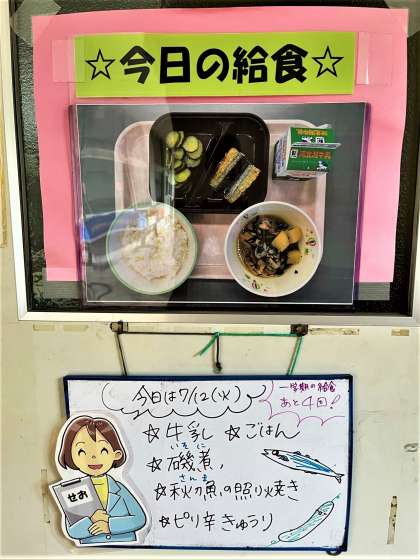 ☆今日の給食☆
今日は7/12(火)
一学期の給食
あと4回!
☆牛乳 ☆ごはん
いそに
☆磯煮
さんま
☆秋刀魚の照り焼き
☆ピリ辛きゅうり
せお